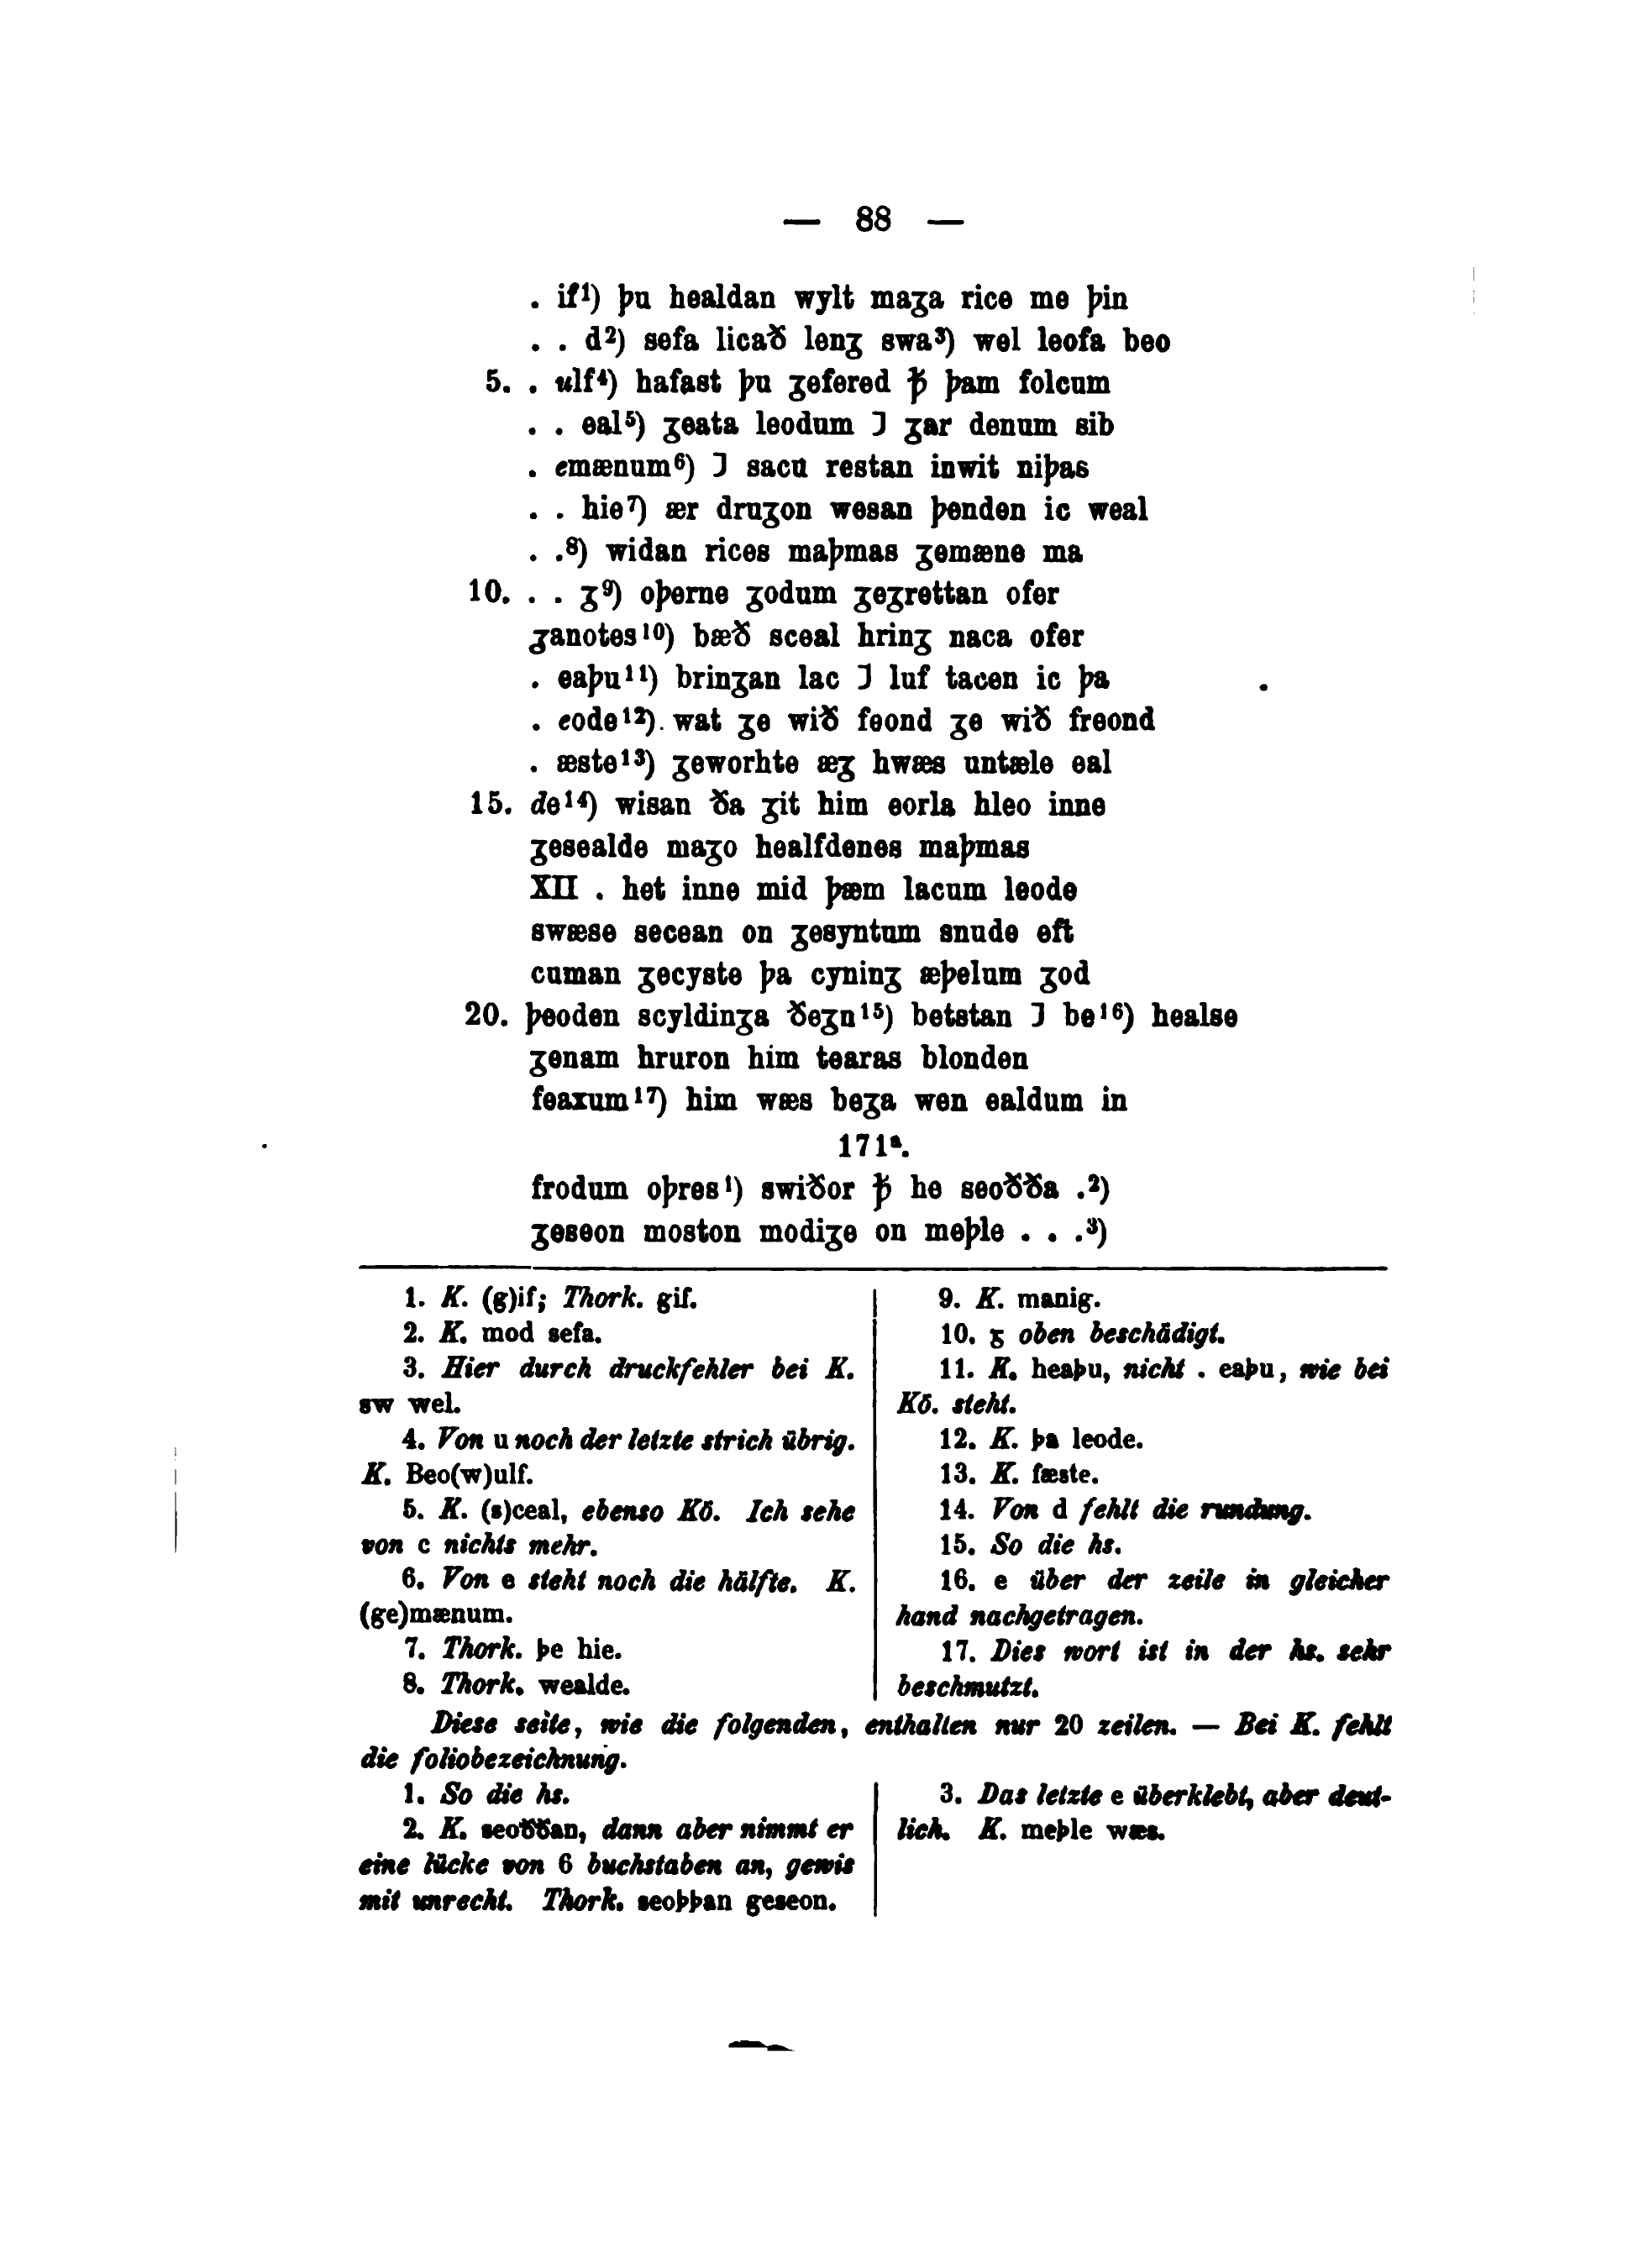 — 88 —
. if¹) þu healdan wylt maʒa rice me þin
. . d²) sefa licað lenʒ swa³) wel leofa beo
5. . ulf⁴) hafast þu ʒefered ꝥ þam folcum
. . eal⁵) ʒeata leodum ⁊ ʒar denum sib
. emænum⁶) ⁊ sacu restan inwit niþas
. . hie⁷) ær druʒon wesan þenden ic weal
. .⁸) widan rices maþmas ʒemæne ma
10. . . ʒ⁹) oþerne ʒodum ʒeʒrettan ofer
ʒanotes¹⁰) bæð sceal hrinʒ naca ofer
. eaþu¹¹) brinʒan lac ⁊ luf tacen ic þa
. eode¹²). wat ʒe wið feond ʒe wið freond
. æste¹³) ʒeworhte æʒ hwæs untæle eal
15. de¹⁴) wisan ða ʒit him eorla hleo inne
ʒesealde maʒo healfdenes maþmas
XII . het inne mid þæm lacum leode
swæse secean on ʒesyntum snude eft
cuman ʒecyste þa cyninʒ æþelum ʒod
20. þeoden scyldinʒa ðeʒn¹⁵) betstan ⁊ be¹⁶) healse
ʒenam hruron him tearas blonden
feaxum¹⁷) him wæs beʒa wen ealdum in
171ᵃ.
frodum oþres¹) swiðor ꝥ he seoðða .²)
ʒeseon moston modiʒe on meþle . . .³)
1. K. (g)if; Thork. gif.
2. K. mod sefa.
3. Hier durch druckfehler bei K.
sw wel.
4. Von u noch der letzte strich übrig.
K. Beo(w)ulf.
5. K. (s)ceal, ebenso Kö. Ich sehe
von c nichts mehr.
6. Von e steht noch die hälfte. K.
(ge)mænum.
7. Thork. þe hie.
8. Thork. wealde.
9. K. manig.
10. ʒ oben beschädigt.
11. K. heaþu, nicht . eaþu, wie bei
Kö. steht.
12. K. þa leode.
13. K. fæste.
14. Von d fehlt die rundung.
15. So die hs.
16. e über der zeile in gleicher
hand nachgetragen.
17. Dies wort ist in der hs. sehr
beschmutzt.
Diese seite, wie die folgenden, enthalten nur 20 zeilen. — Bei K. fehlt
die foliobezeichnung.
1. So die hs.
2. K. seoððan, dann aber nimmt er
eine lücke von 6 buchstaben an, gewis
mit unrecht. Thork. seoþþan geseon.
3. Das letzte e überklebt, aber deut-
lich. K. meþle wæs.